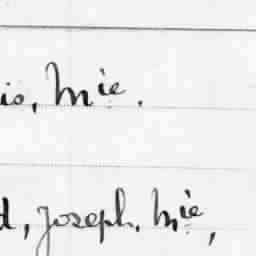 is, Mie.
d, Joseph, Mie,